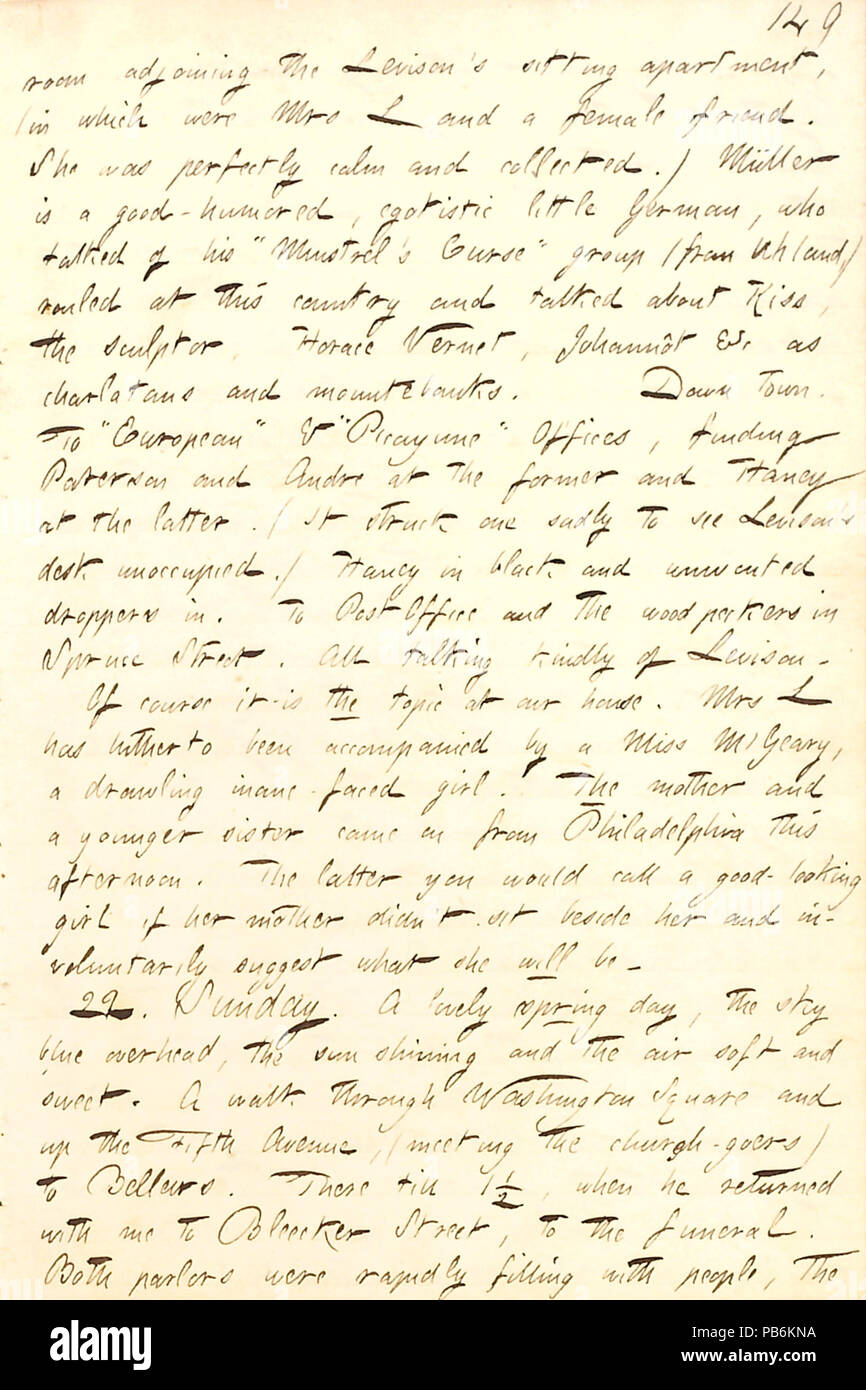 149
room adjoining the Levison's sitting apartment,
(in which were Mrs L and a female friend.
She was perfectly calm and collected.) Müller
is a good-humored, egotistic little German, who
talked of his "Minstrel's Curse" group (from Uhland,)
railed at this country and talked about Kiss,
the sculptor, Horace Vernet, Johannôt &c as
charlatans and mountebanks. Down town.
To "European" & "Picayune" Offices, finding
Paterson and Andre at the former and Haney
at the latter. (It struck one sadly to see Levison's
desk unoccupied.) Haney in black and unwonted
droppers in. To Post Office and the woodpeckers in
Spruce Street. All talking kindly of Levison -
Of course it is the topic at our house. Mrs L
has hitherto been accompanied by a Miss McGeary,
a drawling inane-faced girl. The mother and
a younger sister came on from Philadelphia this
afternoon. The latter you would call a good-looking
girl if her mother didn't sit beside her and in-
voluntarily suggest what she will be -
22. Sunday. A lovely spring day, the sky
blue overhead, the sun shining and the air soft and
sweet. A walk through Washington Square and
up the Fifth Avenue, (meeting the church-goers)
to Bellews. There till 1 1/2, when he returned
with me to Bleecker Street, to the funeral.
Both parlors were rapidly filling with people, the
alamy
Image ID: PB6KNA
www.alamy.com